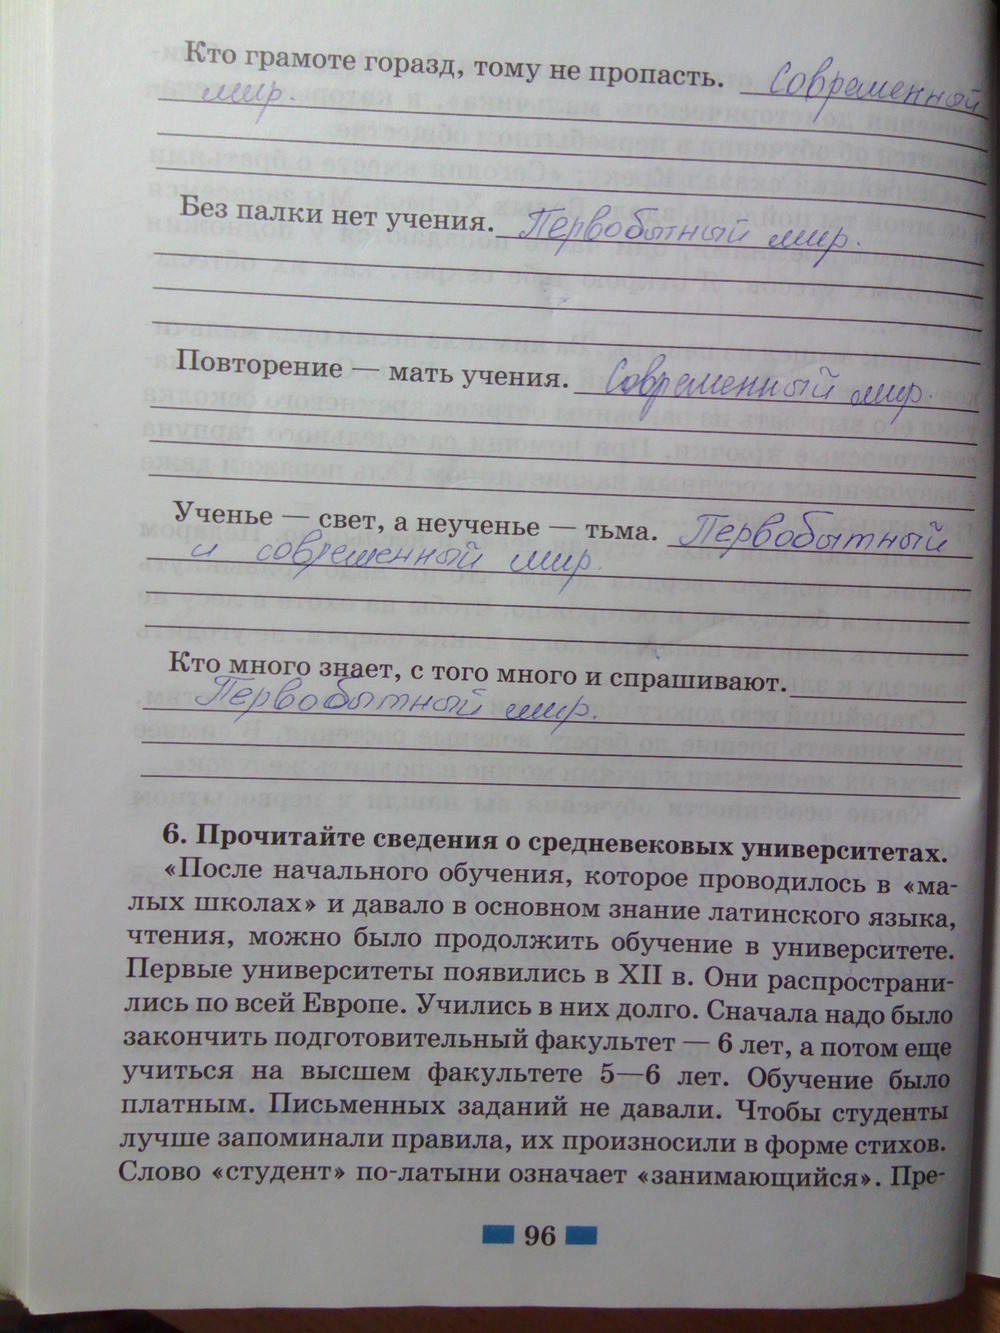 Кто грамоте горазд, тому не пропасть. Современной
мир.
Без палки нет учения. Первобытный мир.
Повторение — мать учения. Современный мир.
Ученье — свет, а неученье — тьма. Первобытный
и современный мир.
Кто много знает, с того много и спрашивают.
Первобытный мир.
6. Прочитайте сведения о средневековых университетах.
«После начального обучения, которое проводилось в «ма-
лых школах» и давало в основном знание латинского языка,
чтения, можно было продолжить обучение в университете.
Первые университеты появились в XII в. Они распространи-
лись по всей Европе. Учились в них долго. Сначала надо было
закончить подготовительный факультет — 6 лет, а потом еще
учиться на высшем факультете 5—6 лет. Обучение было
платным. Письменных заданий не давали. Чтобы студенты
лучше запоминали правила, их произносили в форме стихов.
Слово «студент» по-латыни означает «занимающийся». Пре-
96